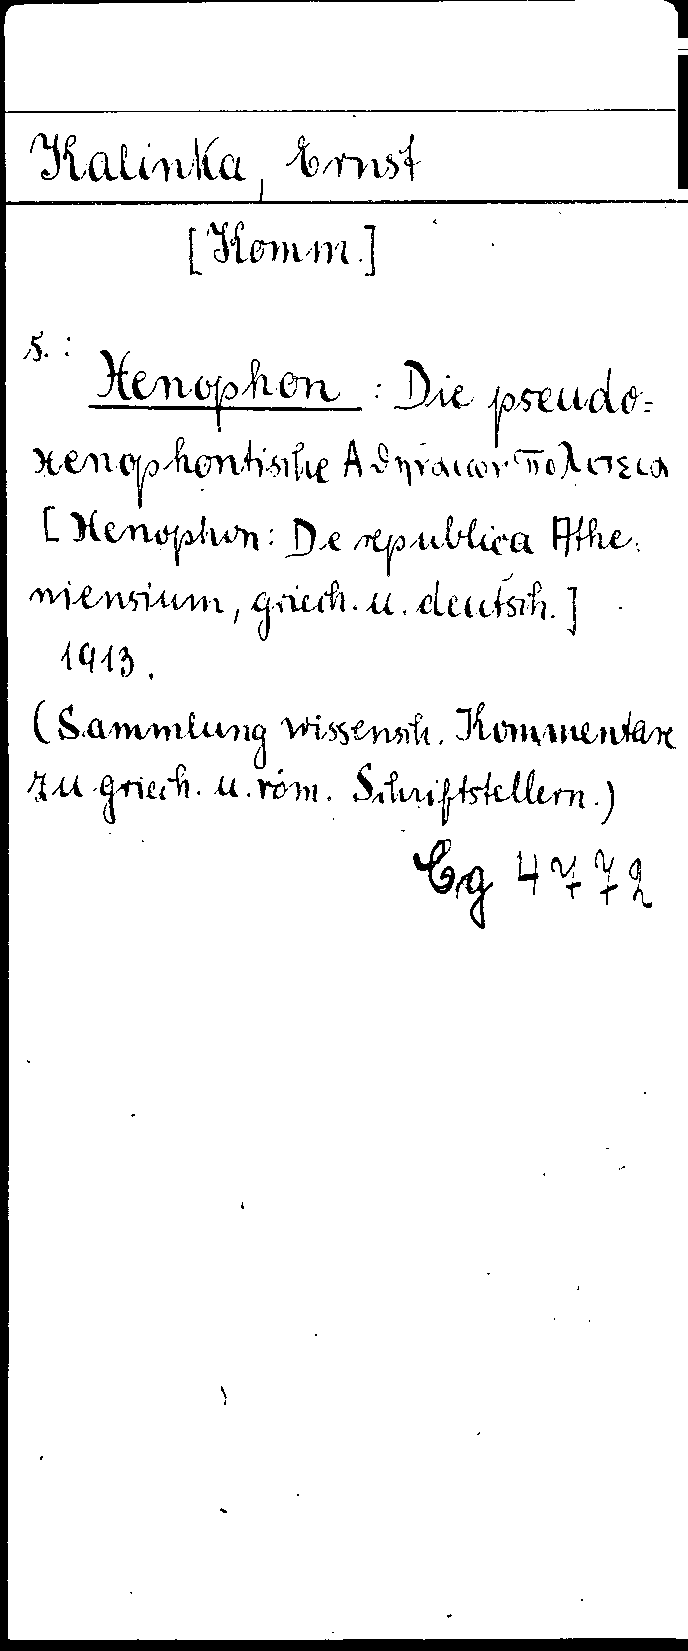 Kalinka, Ernst
[Komm.]
s.:
Xenophon : Die pseudo-
xenophontische Αθηναιων πολιτεια
[Xenophon: De republica Athe-
niensium, griech. u. deutsch.]
1913.
(Sammlung wissensch. Kommentare
zu griech. u. röm. Schriftstellern.)
Cg 4772